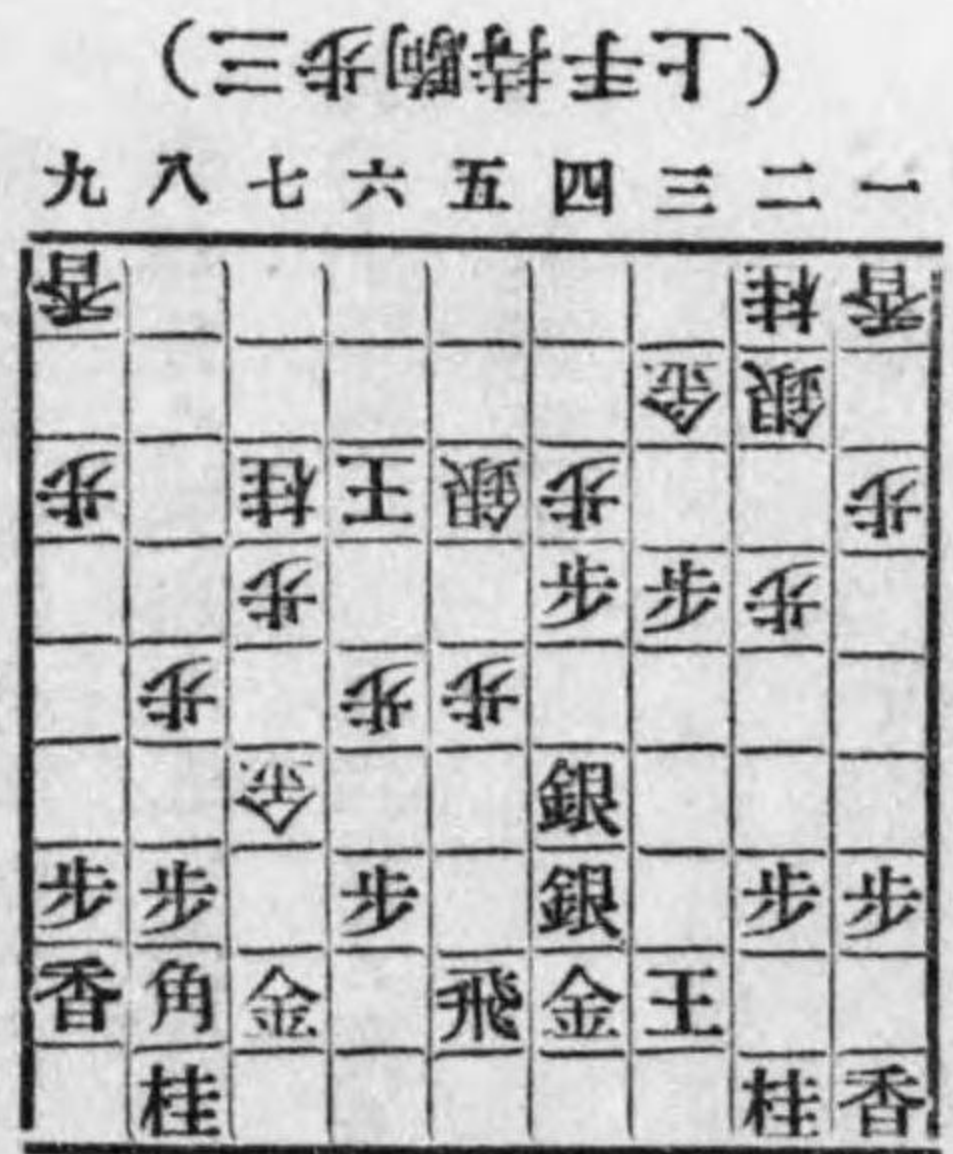 （上手持駒歩三）
九 八 七 六 五 四 三 二 一
香 桂 香
金 銀
歩 桂 王 銀 歩 歩
歩 歩 歩 歩
歩 歩 歩
金 銀
歩 歩 歩 銀 歩 歩
香 角 金 飛 金 王
桂 桂 香